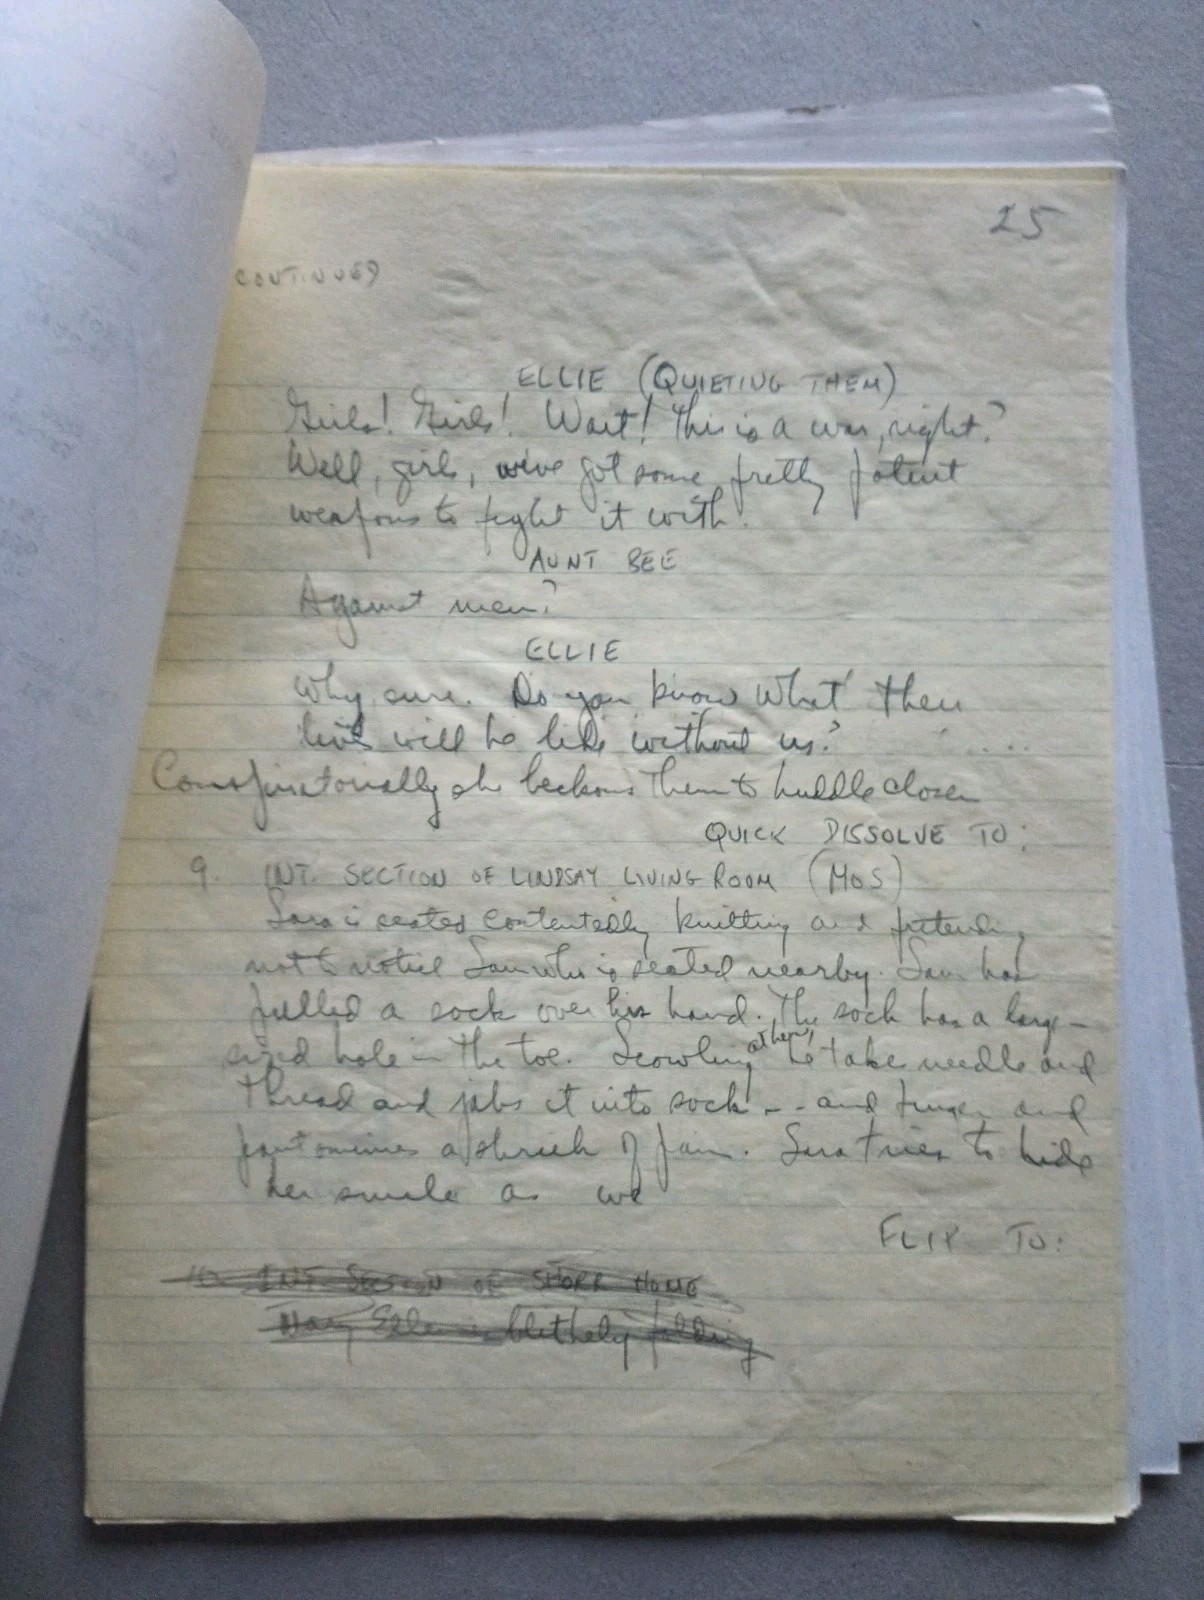 25
CONTINUED
ELLIE (QUIETING THEM)
Girls! Girls! Wait! This is a war, right?
Well, girls, we've got some pretty potent
weapons to fight it with.
AUNT BEE
Against men?
ELLIE
Why sure. Do you know what their
lives will be like without us?
Conspiratorially she beckons them to huddle closer
QUICK DISSOLVE TO:
9. INT. SECTION OF LINDSAY LIVING ROOM (MOS)
Sara is seated contentedly knitting and pretending
not to notice Sam who is seated nearby. Sam has
pulled a sock over his hand. The sock has a large-
sized hole in the toe. Scowling at her, he takes needle and
thread and jabs it into sock -- and finger and
pantomimes a shriek of pain. Sara tries to hide
her smile as we
FLIP TO:
10. INT. SECTION OF STORR HOME
Mary Ellen is blithely folding